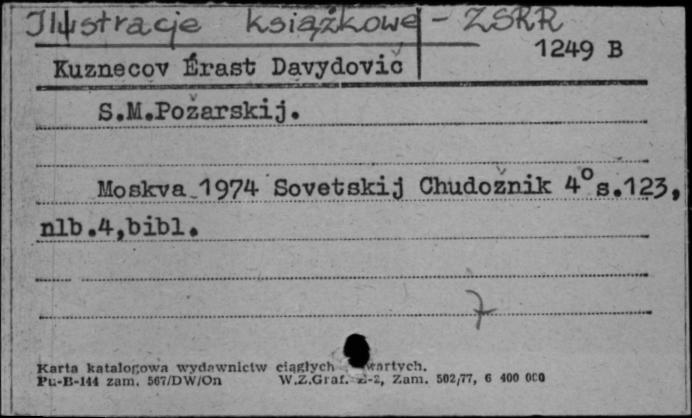 Ilustracje książkowe - ZSRR
1249 B
Kuznecov Érast Davydovič
S.M.Požarskij.
Moskva 1974 Sovetskij Chudožnik 4° s.123,
nlb.4,bibl.
7
Karta katalogowa wydawnictw ciągłych wartych.
Pu-B-144 zam. 567/DW/On W.Z.Graf. Z-2, Zam. 502/77, 6 400 000